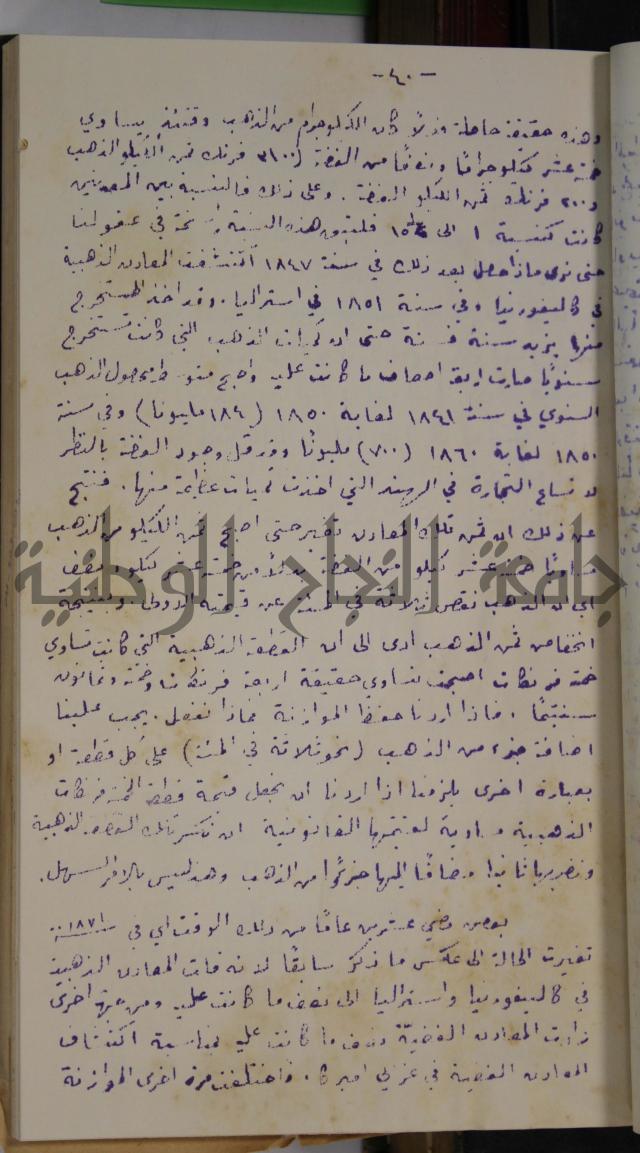 - ٤٠ -
وهذه حقيقة حاصلة فلا كان الكيلوجرام من الذهب وقتئذ يساوي
خمسة عشر كيلوجرامًا ونصفًا من الفضة (٣١٠٠ فرنك ثمن الكيلو الذهب
و ٢٠٠ فرنك ثمن الكيلو الفضة. وعلى ذلك فالنسبة بين المعدنين
كانت كنسبة ١ الى ١٥ فلتبق هذه النسبة راسخة في عقولنا
حتى نرى ماذا حصل بعد ذلك في سنة ١٨٤٧ اكتشفت المعادن الذهبية
في كاليفورنيا وفي سنة ١٨٥١ في استراليا. وقد اخذ المستخرج
منها يزيد سنة فسنة حتى ان كميات الذهب التي كانت تستخرج
سنويًا صارت اربعة اضعاف ما كانت عليه واصبح متوسط محصول الذهب
السنوي في سنة ١٨٤١ لغاية ١٨٥٠ (١٨٤ مليونا) وفي سنة
١٨٥٠ لغاية ١٨٦٠ (٧٠٠) مليونًا وقد قل وجود الفضة بالنظر
لاتساع التجارة في الهند التي اخذت كميات عظيمة منها. فنتج
عن ذلك ان ثمن تلك المعادن تغير حتى اصبح ثمن الكيلو من الذهب
مساويًا خمسة عشر كيلو من الفضة بدلًا من خمسة عشر كيلو ونصف
اي ان الذهب نقص ثلاثة في المئة عن قيمته الاولى. ونتيجة
انخفاض ثمن الذهب ادى الى ان القطعة الذهبية التي كانت تساوي
خمسة فرنكات اصبحت تساوي حقيقة اربعة فرنكات وخمسة وثمانون
سنتيمًا. فاذا اردنا حفظ الموازنة ماذا نفعل. يجب علينا
اضافة جزء من الذهب (نحو ثلاثة في المئة) على كل قطعة او
بعبارة اخرى يلزمنا اذا اردنا ان نجعل قيمة قطع الخمسة فرنكات
الذهبية مساوية لقيمتها القانونية ان نكسر تلك القطع الذهبية
ونضربها ثانيا مضافًا اليها جزءًا من الذهب وهذا ليس بالامر السهل.
بعد مضي عشرين عامًا من ذلك الوقت اي في سنة ١٨٧١
تغيرت الحالة الى عكس ما ذكر سابقًا لانه قلت المعادن الذهبية
في كاليفورنيا واستراليا الى نصف ما كانت عليه ومن جهة اخرى
زادت المعادن الفضية ضعف ما كانت عليه بمناسبة اكتشاف
المعادن الفضية في غربي اميركا. فاختلفت مرة اخرى الموازنة
جامعة النجاح الوطنية